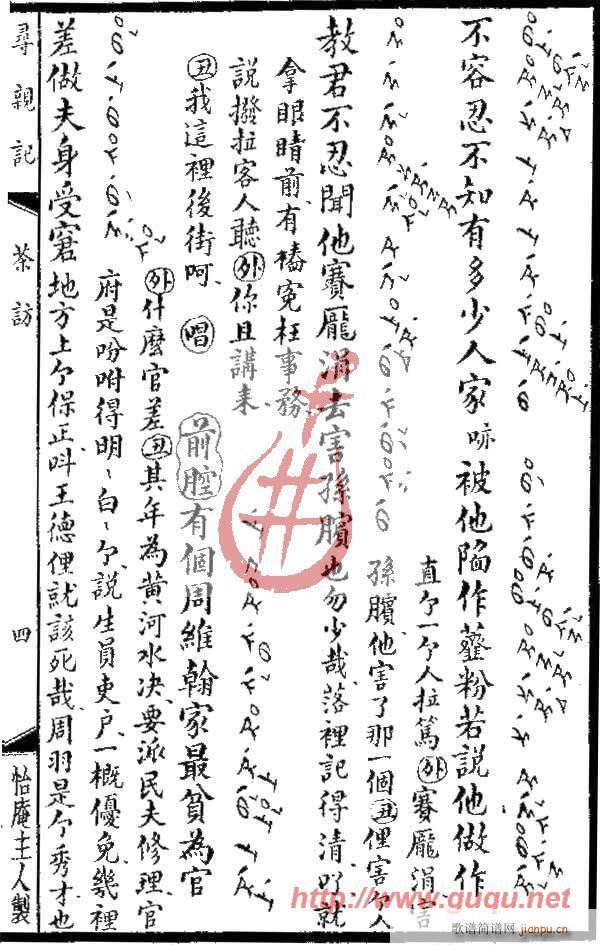 不容忍不知有多少人家哧被他陷作虀粉若說他做作
直个一个人拉篤(外)賽龐涓害
孫臏他害了那一個(丑)俚害个人
教君不忍聞他賽龐涓去害孫臏也勿少哉落裡記得清吖就
拿眼睛前有樁寃枉事務
說撥拉客人聽(外)你且講來
(丑)我這裡後街呵(唱)
前腔有個周維翰家最貧為官
(外)什麼官差(丑)其年為黃河水決要派民夫修理官
府是吩咐得明〻白〻个說生員吏户一概優免幾裡
差做夫身受窘地方上个保正呌王德俚就該死哉周羽是个秀才也
尋親記
茶訪
四
怡庵主人製
http://www.guqu.net
歌谱简谱网
jianpu.cn